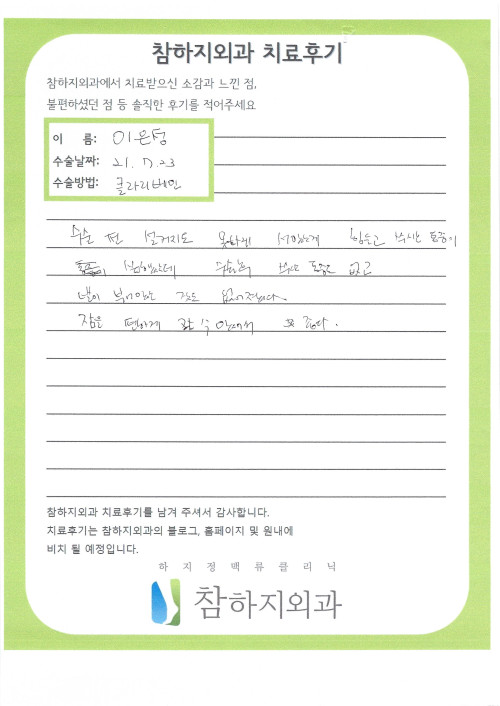 참하지외과 치료후기
참하지외과에서 치료받으신 소감과 느낀 점,
불편하셨던 점 등 솔직한 후기를 적어주세요
이 름: 이은성
수술날짜: 21. 7. 23
수술방법: 클라리베인
수술 전 설거지도 못하게 서있는게 힘들고 쑤시는 통증이
심했는데 수술후 쑤시는 통증은 없고
발이 부어있는 것도 없어졌다.
잠을 편하게 잘 수 있어서 좋다.
참하지외과 치료후기를 남겨 주셔서 감사합니다.
치료후기는 참하지외과의 블로그, 홈페이지 및 원내에
비치 될 예정입니다.
하지정맥류클리닉
참하지외과